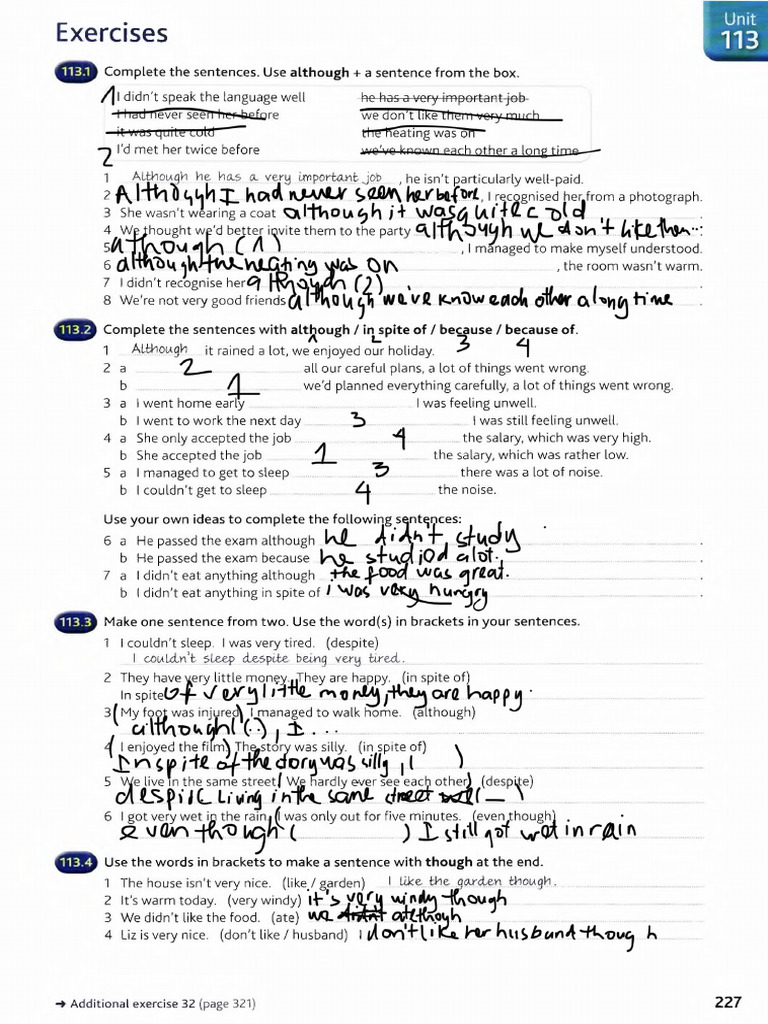 Exercises
Unit
113
113.1 Complete the sentences. Use although + a sentence from the box.
1 I didn't speak the language well he has a very important job
I had never seen her before we don't like them very much
it was quite cold the heating was on
2 I'd met her twice before we've known each other a long time
1 Although he has a very important job , he isn't particularly well-paid.
2 Although I had never seen her before, I recognised her from a photograph.
3 She wasn't wearing a coat although it was quite cold .
4 We thought we'd better invite them to the party although we don't like them...
5 although (1) , I managed to make myself understood.
6 although the heating was on , the room wasn't warm.
7 I didn't recognise her although (2) .
8 We're not very good friends although we've know each other a long time
113.2 Complete the sentences with although / in spite of / because / because of.
1 2 3 4
1 Although it rained a lot, we enjoyed our holiday.
2 a 2 all our careful plans, a lot of things went wrong.
b 1 we'd planned everything carefully, a lot of things went wrong.
3 a I went home early I was feeling unwell.
b I went to work the next day 3 I was still feeling unwell.
4 a She only accepted the job 4 the salary, which was very high.
b She accepted the job 1 the salary, which was rather low.
5 a I managed to get to sleep 3 there was a lot of noise.
b I couldn't get to sleep 4 the noise.
Use your own ideas to complete the following sentences:
6 a He passed the exam although he didn't study .
b He passed the exam because he studied a lot. .
7 a I didn't eat anything although the food was great. .
b I didn't eat anything in spite of i was very hungry .
113.3 Make one sentence from two. Use the word(s) in brackets in your sentences.
1 I couldn't sleep. I was very tired. (despite)
I couldn't sleep despite being very tired.
2 They have very little money. They are happy. (in spite of)
In spite of very little money, they are happy.
3 (My foot was injured) I managed to walk home. (although)
although (..), I ...
4 (I enjoyed the film) The story was silly. (in spite of)
In spite of the story was silly, ( )
5 We live in the same street. (We hardly ever see each other) (despite)
despite living in the same street ( )
6 I got very wet in the rain. (I was only out for five minutes. (even though)
even though ( ) I still got wet in rain
113.4 Use the words in brackets to make a sentence with though at the end.
1 The house isn't very nice. (like / garden) I like the garden though.
2 It's warm today. (very windy) it's very windy though
3 We didn't like the food. (ate) we didn't ate though
4 Liz is very nice. (don't like / husband) I don't like her husband though
→ Additional exercise 32 (page 321)
227